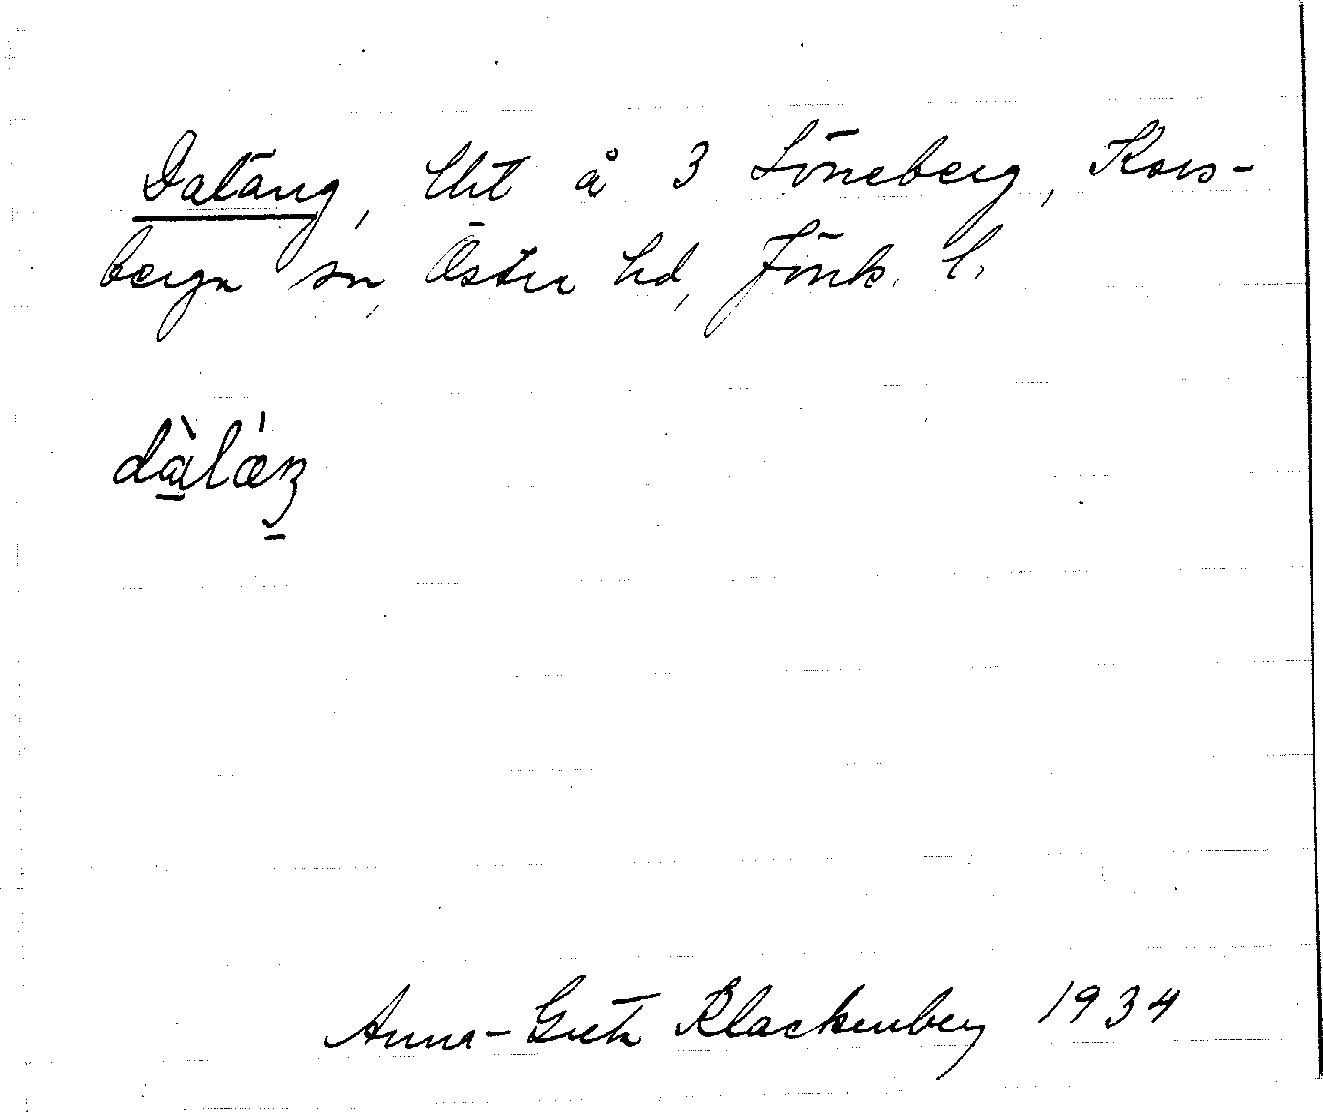 Daläng, lht å 3 Löneberg, Kors-
berga sn, Östra hd, Jönk. l.
dàlæŋ
Anna-Greta Klackenberg 1934